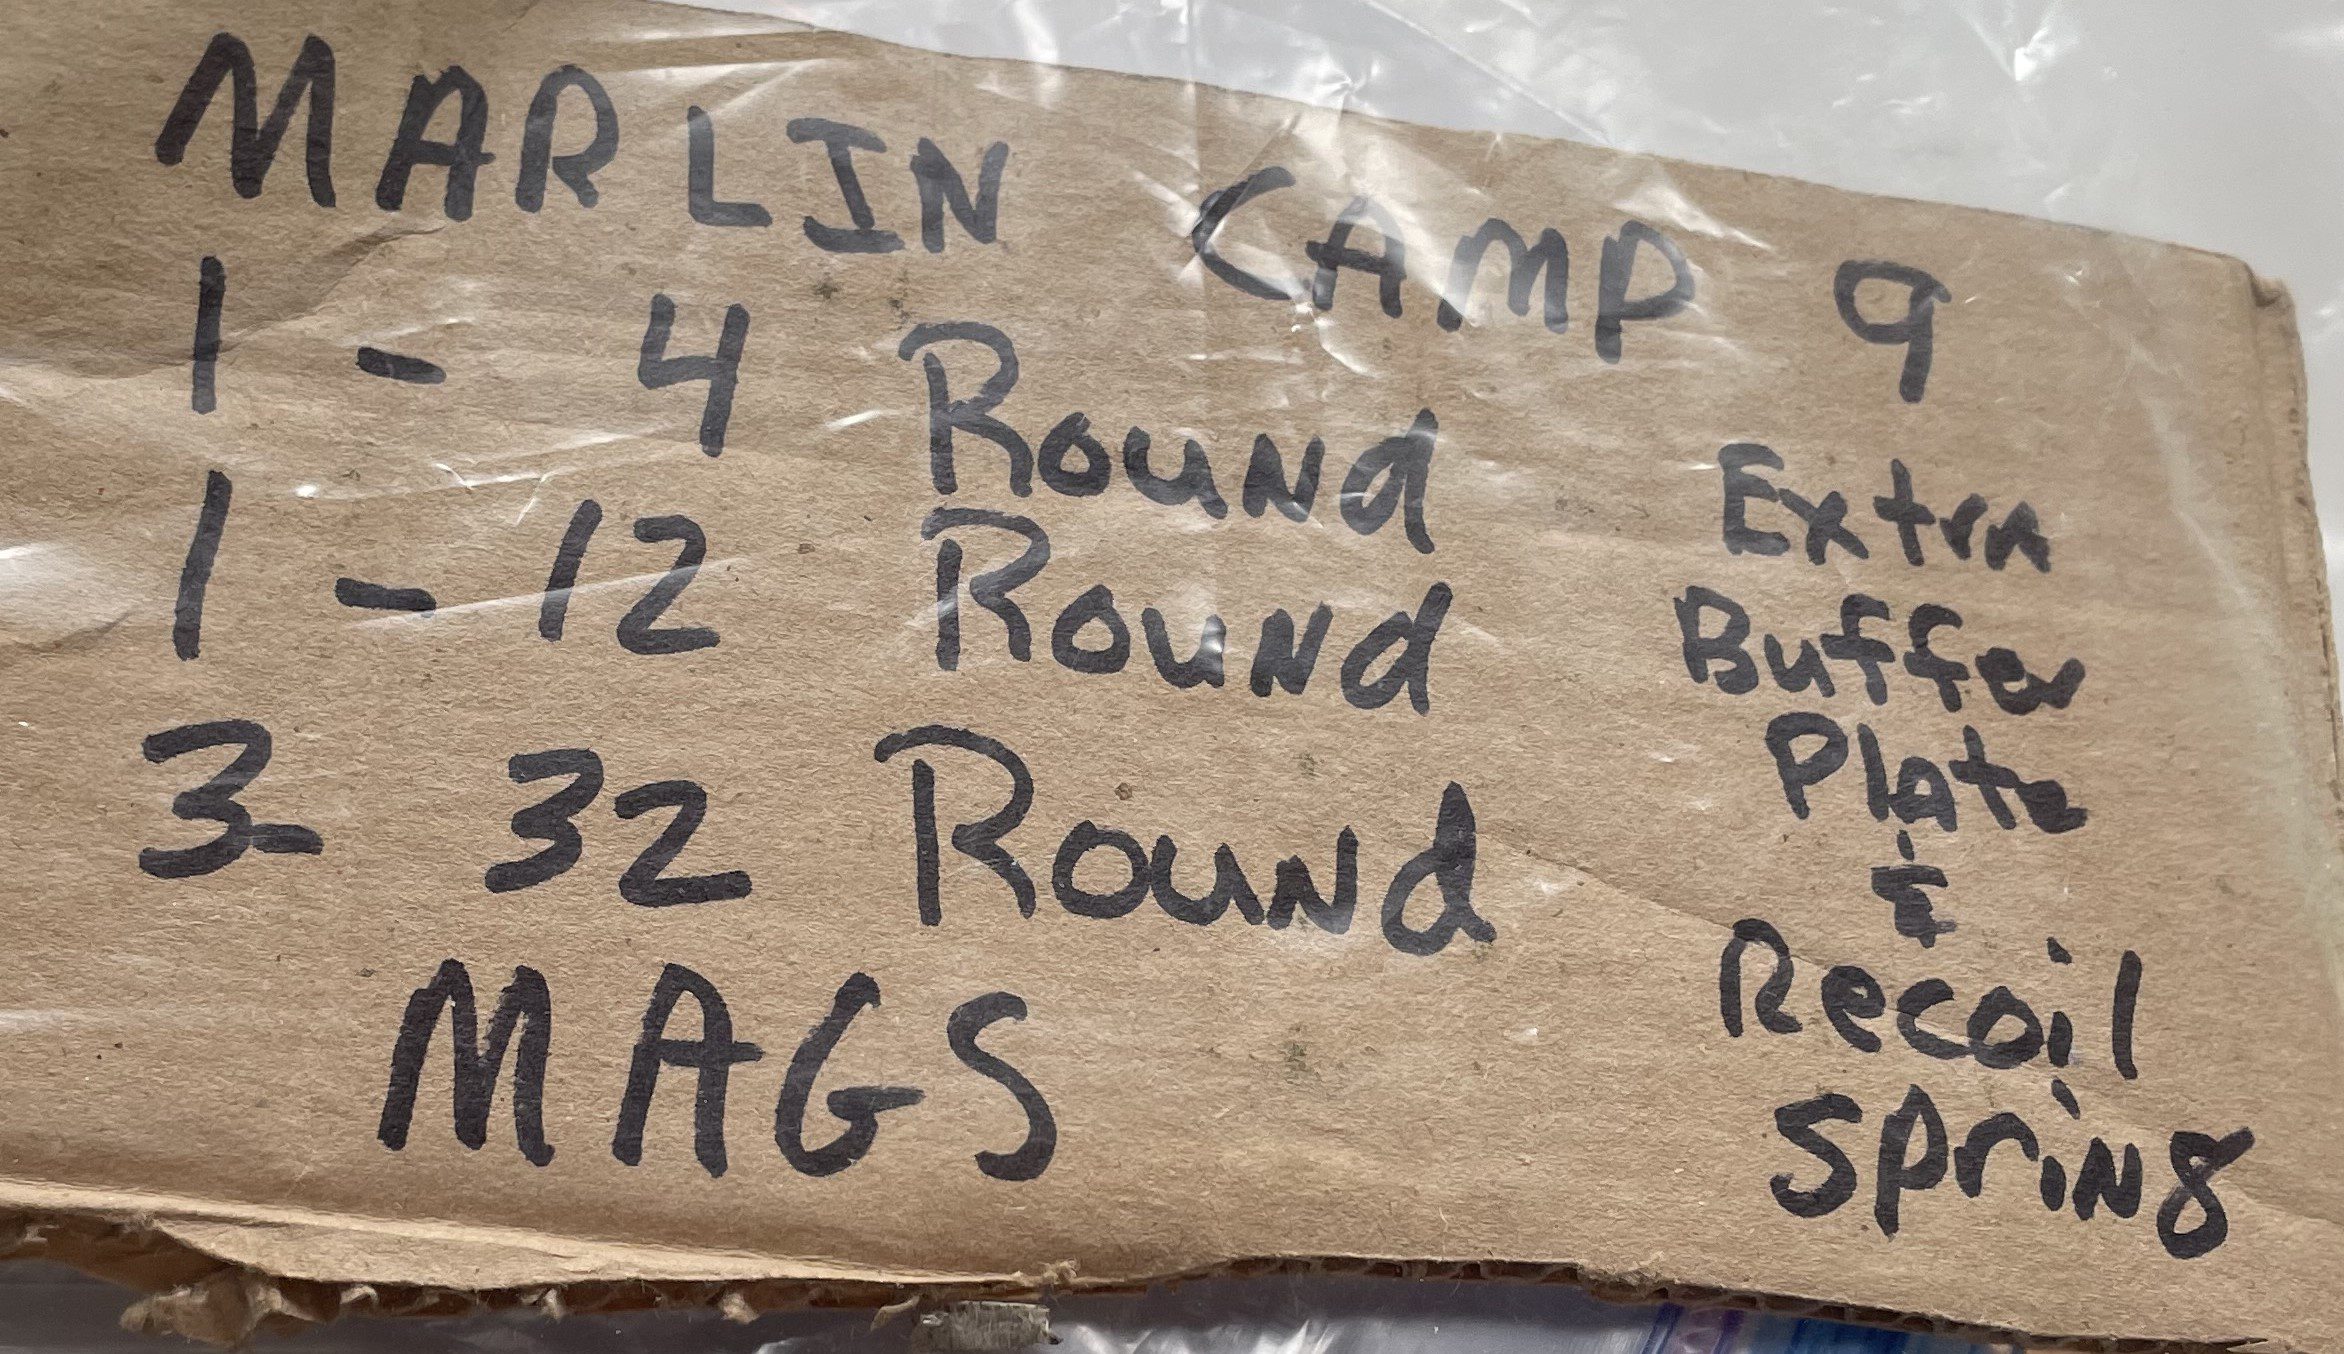 MARLIN CAMP 9
1 - 4 Round
1 - 12 Round
3 - 32 Round
MAGS
Extra
Buffer
Plate
&
Recoil
Spring